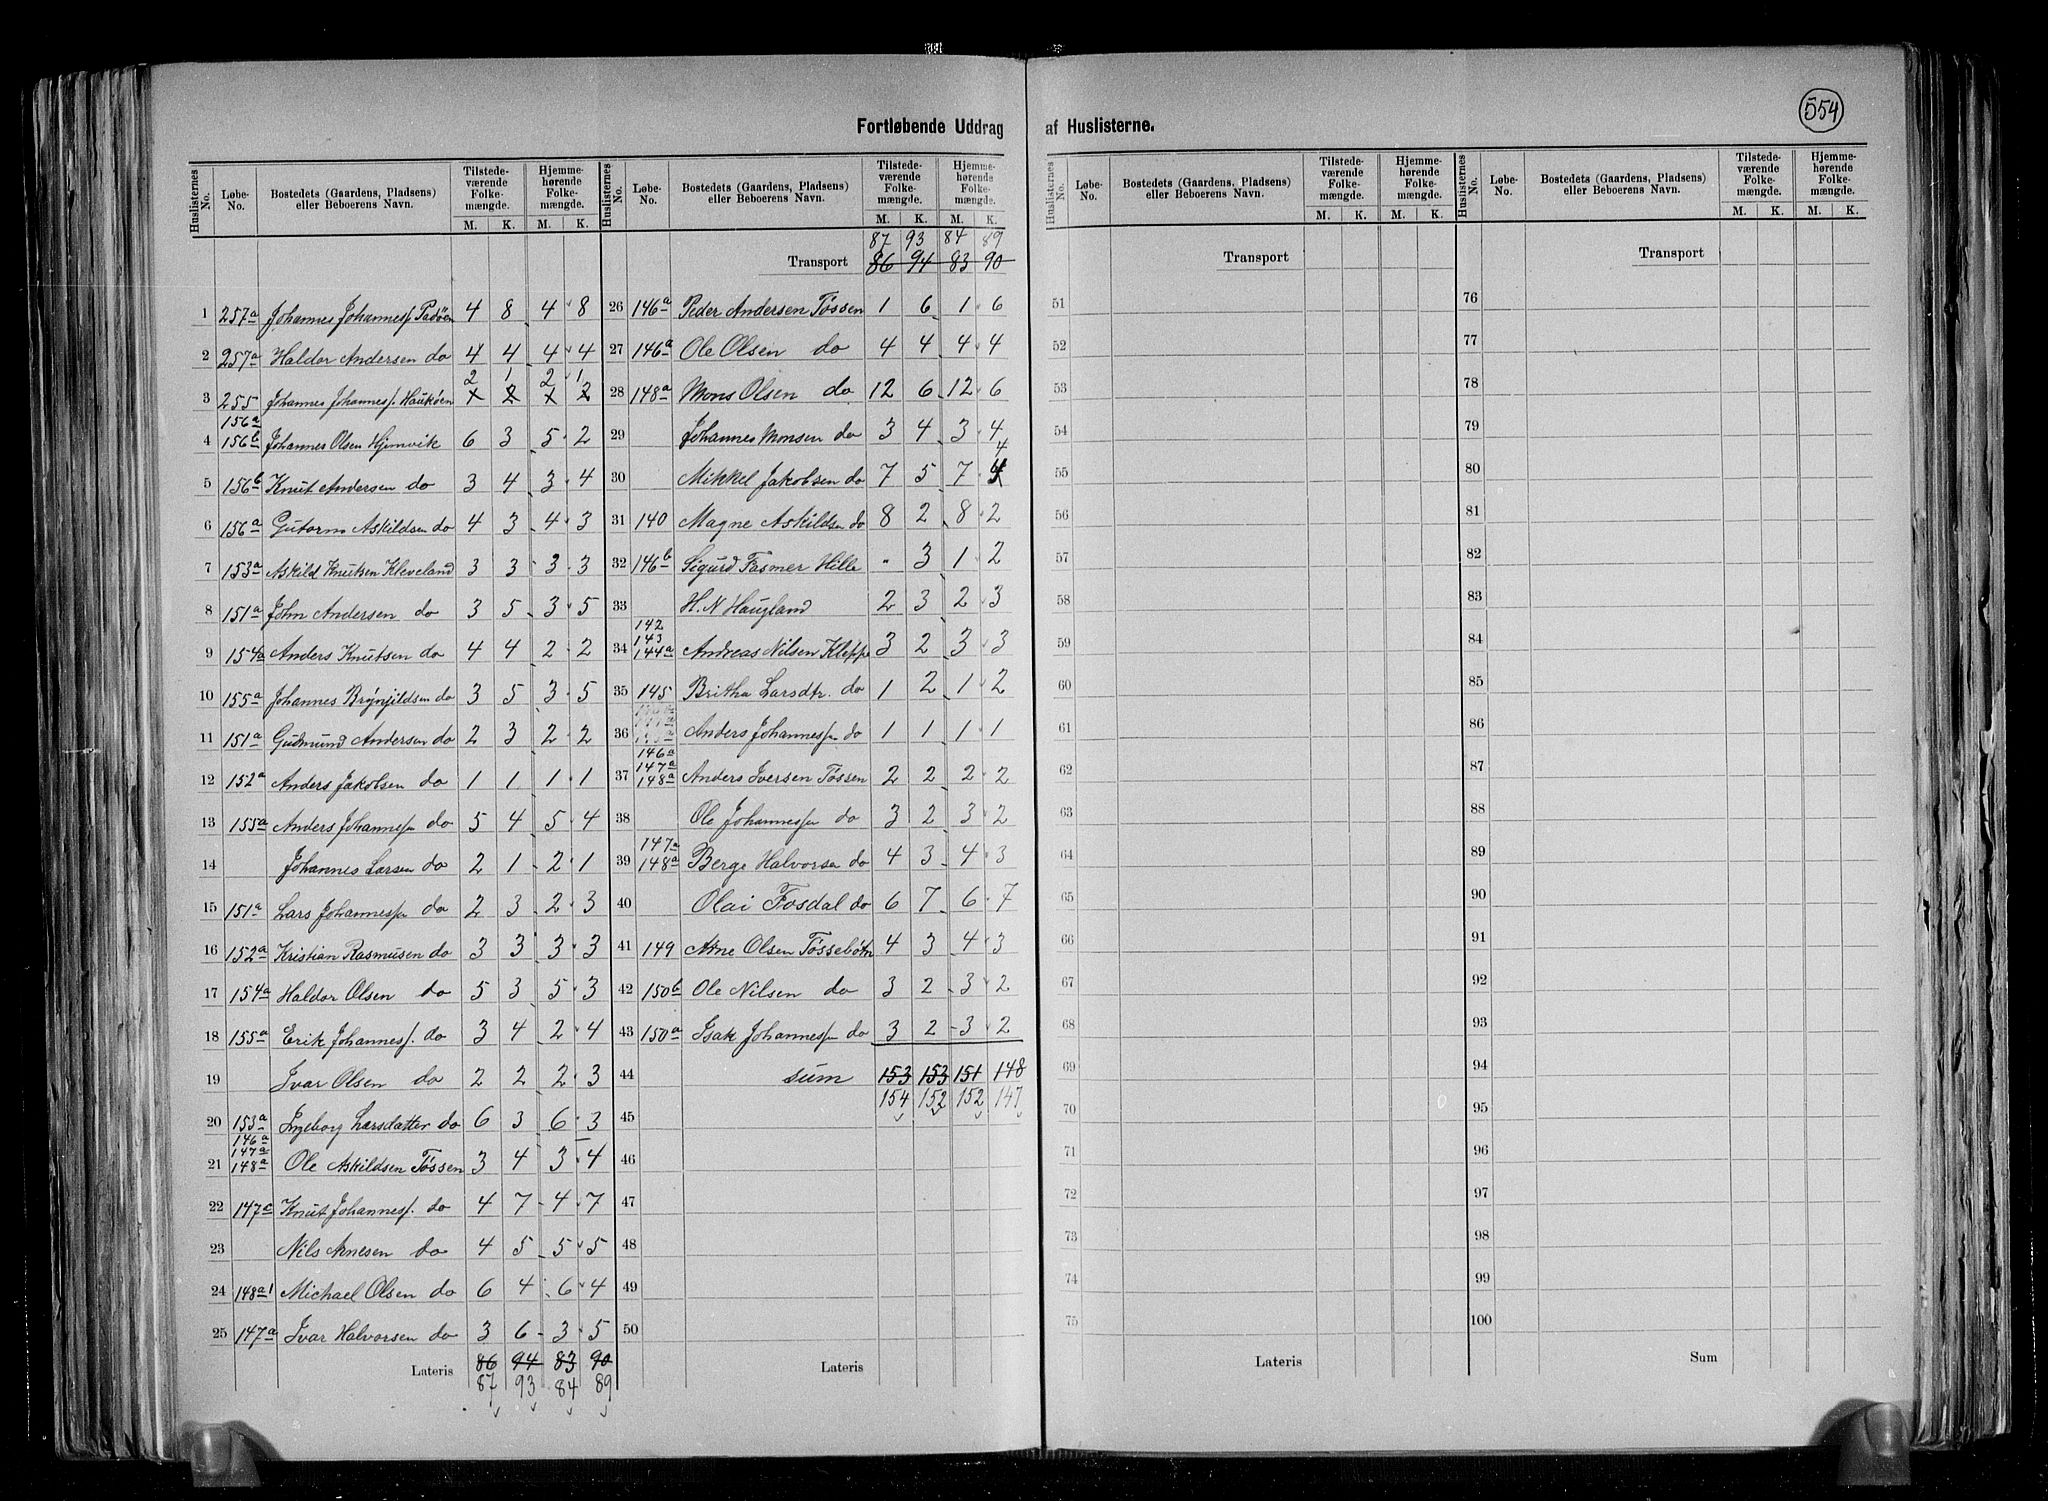 554
Fortløbende Uddrag af Huslisterne.
Huslisternes No. | Løbe-No. | Bostedets (Gaardens, Pladsens) eller Beboerens Navn. | Tilstedeværende Folkemængde. M. K. | Hjemmehørende Folkemængde. M. K.
1 257a Johannes Johannesſ Padöen 4 8 4 8
2 257a Haldor Andersen do 4 4 4 4
3 255 Johannes Johannesſ. Haukøen 2 1 2 1
4 156a 156b Johannes Olsen Hjemvik 6 3 5 2
5 156b Knut Andersen do 3 4 3 4
6 156a Gutorm Askildsen do 4 3 4 3
7 153a Askild Knutsen Kleveland 3 3 3 3
8 151a John Andersen do 3 5 3 5
9 154a Anders Knutsen do 4 4 2 2
10 155a Johannes Brynjildsen do 3 5 3 5
11 151a Gudmund Andersen do 2 3 2 2
12 152a Anders Jakobsen do 1 1 1 1
13 155a Anders Johannesſen do 5 4 5 4
14 Johannes Larsen do 2 1 2 1
15 151a Lars Johannesſen do 2 3 2 3
16 152a Kristian Rasmusen do 3 3 3 3
17 154a Haldor Olsen do 5 3 5 3
18 155a Erik Johannesſ. do 3 4 2 4
19 Ivar Olsen do 2 2 2 3
20 153a Ingeborg Larsdatter do 6 3 6 3
21 146a 147a 148a Ole Askildsen Tøssen 3 4 3 4
22 147a Knut Johannesſ. do 4 7 4 7
23 Nils Arnesen do 4 5 5 5
24 148a1 Michael Olsen do 6 4 6 4
25 147a Ivar Halvorsen do 3 6 3 5
Lateris 86 94 83 90
87 93 84 89
Huslisternes No. | Løbe-No. | Bostedets (Gaardens, Pladsens) eller Beboerens Navn. | Tilstedeværende Folkemængde. M. K. | Hjemmehørende Folkemængde. M. K.
87 93 84 89
Transport 86 94 83 90
26 146a Peder Andersen Tøssen 1 6 1 6
27 146a Ole Olsen do 4 4 4 4
28 148a Mons Olsen do 12 6 12 6
29 Johannes Monsen do 3 4 3 4
30 Mikkel Jakobsen do 7 5 7 4
31 140 Magne Askildsen do 8 2 8 2
32 146b Sigurd Fasmer Hille " 3 1 2
33 H. N Haugland 2 3 2 3
34 142 143 144a Andreas Nilsen Kleppe 3 2 3 3
35 145 Britha Larsdtr. do 1 2 1 2
36 Anders Johannesſen do 1 1 1 1
37 146a 147a 148a Anders Iversen Tøssen 2 2 2 2
38 Ole Johannesſen do 3 2 3 2
39 147a 148a Berge Halvorsen do 4 3 4 3
40 Olai Fosdal do 6 7 6 7
41 149 Arne Olsen Tøssebotn 4 3 4 3
42 150b Ole Nilsen do 3 2 3 2
43 150a Isak Johannesſen do 3 2 3 2
44 sum 153 153 151 148
45 154 152 152 147
46
47
48
49
50
Lateris
Huslisternes No. | Løbe-No. | Bostedets (Gaardens, Pladsens) eller Beboerens Navn. | Tilstedeværende Folkemængde. M. K. | Hjemmehørende Folkemængde. M. K.
Transport
51
52
53
54
55
56
57
58
59
60
61
62
63
64
65
66
67
68
69
70
71
72
73
74
75
Lateris
Huslisternes No. | Løbe-No. | Bostedets (Gaardens, Pladsens) eller Beboerens Navn. | Tilstedeværende Folkemængde. M. K. | Hjemmehørende Folkemængde. M. K.
Transport
76
77
78
79
80
81
82
83
84
85
86
87
88
89
90
91
92
93
94
95
96
97
98
99
100
Sum